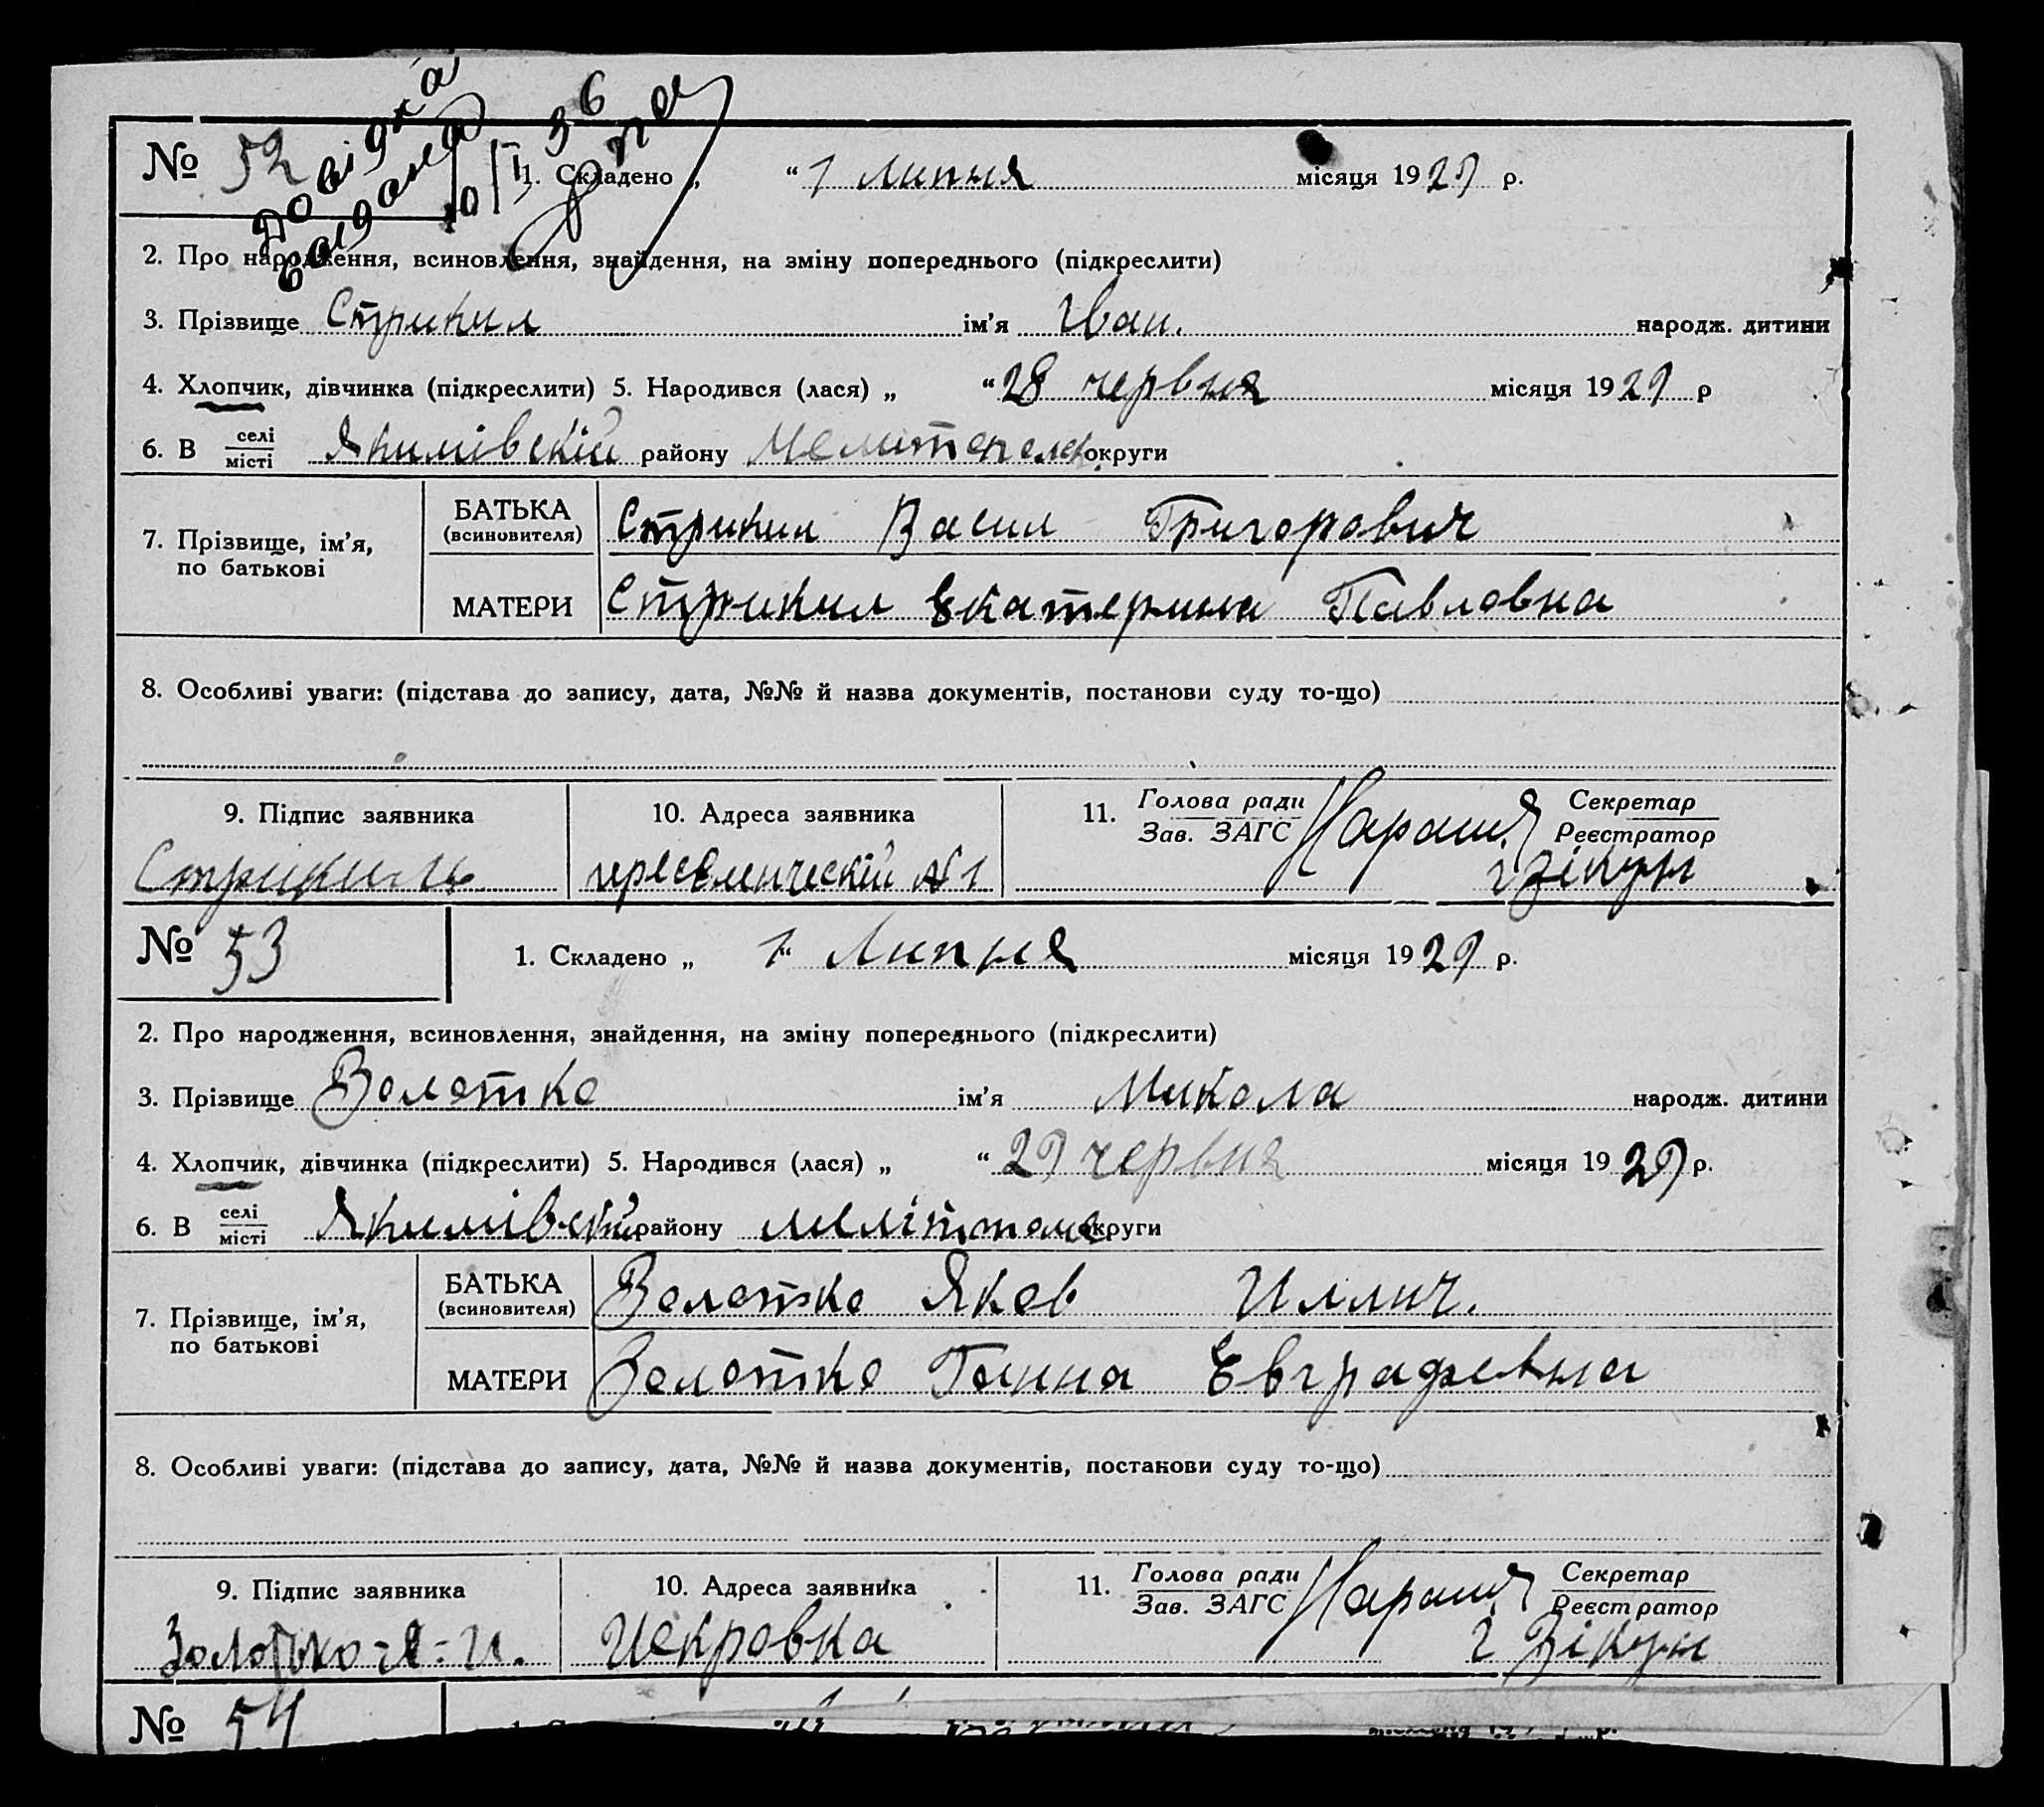 Довідка
видана
10/I 36
№ 52
1. Складено „ “ 1 Липня місяця 1929 р.
2. Про народження, всиновлення, знайдення, на зміну попереднього (підкреслити)
3. Прізвище Стрикил ім'я Іван. народж. дитини
4. Хлопчик, дівчинка (підкреслити) 5. Народився (лася) „ “ 28 червня місяця 1929 р
6. В селі місті Якимівскій району округи
7. Прізвище, ім'я, по батькові
БАТЬКА (всиновителя) Стрикил Васил Григорович
МАТЕРИ Стрикил Екатерина Павловна
8. Особливі уваги: (підстава до запису, дата, №№ й назва документів, постанови суду то-що)
9. Підпис заявника 10. Адреса заявника 11. Голова ради Зав. ЗАГС Секретар Реєстратор
Стрикиль переселенческій №1
№ 53
1. Складено „ “ 1 Липня місяця 1929 р.
2. Про народження, всиновлення, знайдення, на зміну попереднього (підкреслити)
3. Прізвище Золотко ім'я Микола народж. дитини
4. Хлопчик, дівчинка (підкреслити) 5. Народився (лася) „ “ 29 червня місяця 1929 р.
6. В селі місті Якимівскій району округи
7. Прізвище, ім'я, по батькові
БАТЬКА (всиновителя) Золотко Яков Иллич.
МАТЕРИ Золотко Ганна Евграфевна
8. Особливі уваги: (підстава до запису, дата, №№ й назва документів, постанови суду то-що)
9. Підпис заявника 10. Адреса заявника 11. Голова ради Зав. ЗАГС Секретар Реєстратор
Золотко-Я-И. Искровка
№ 54